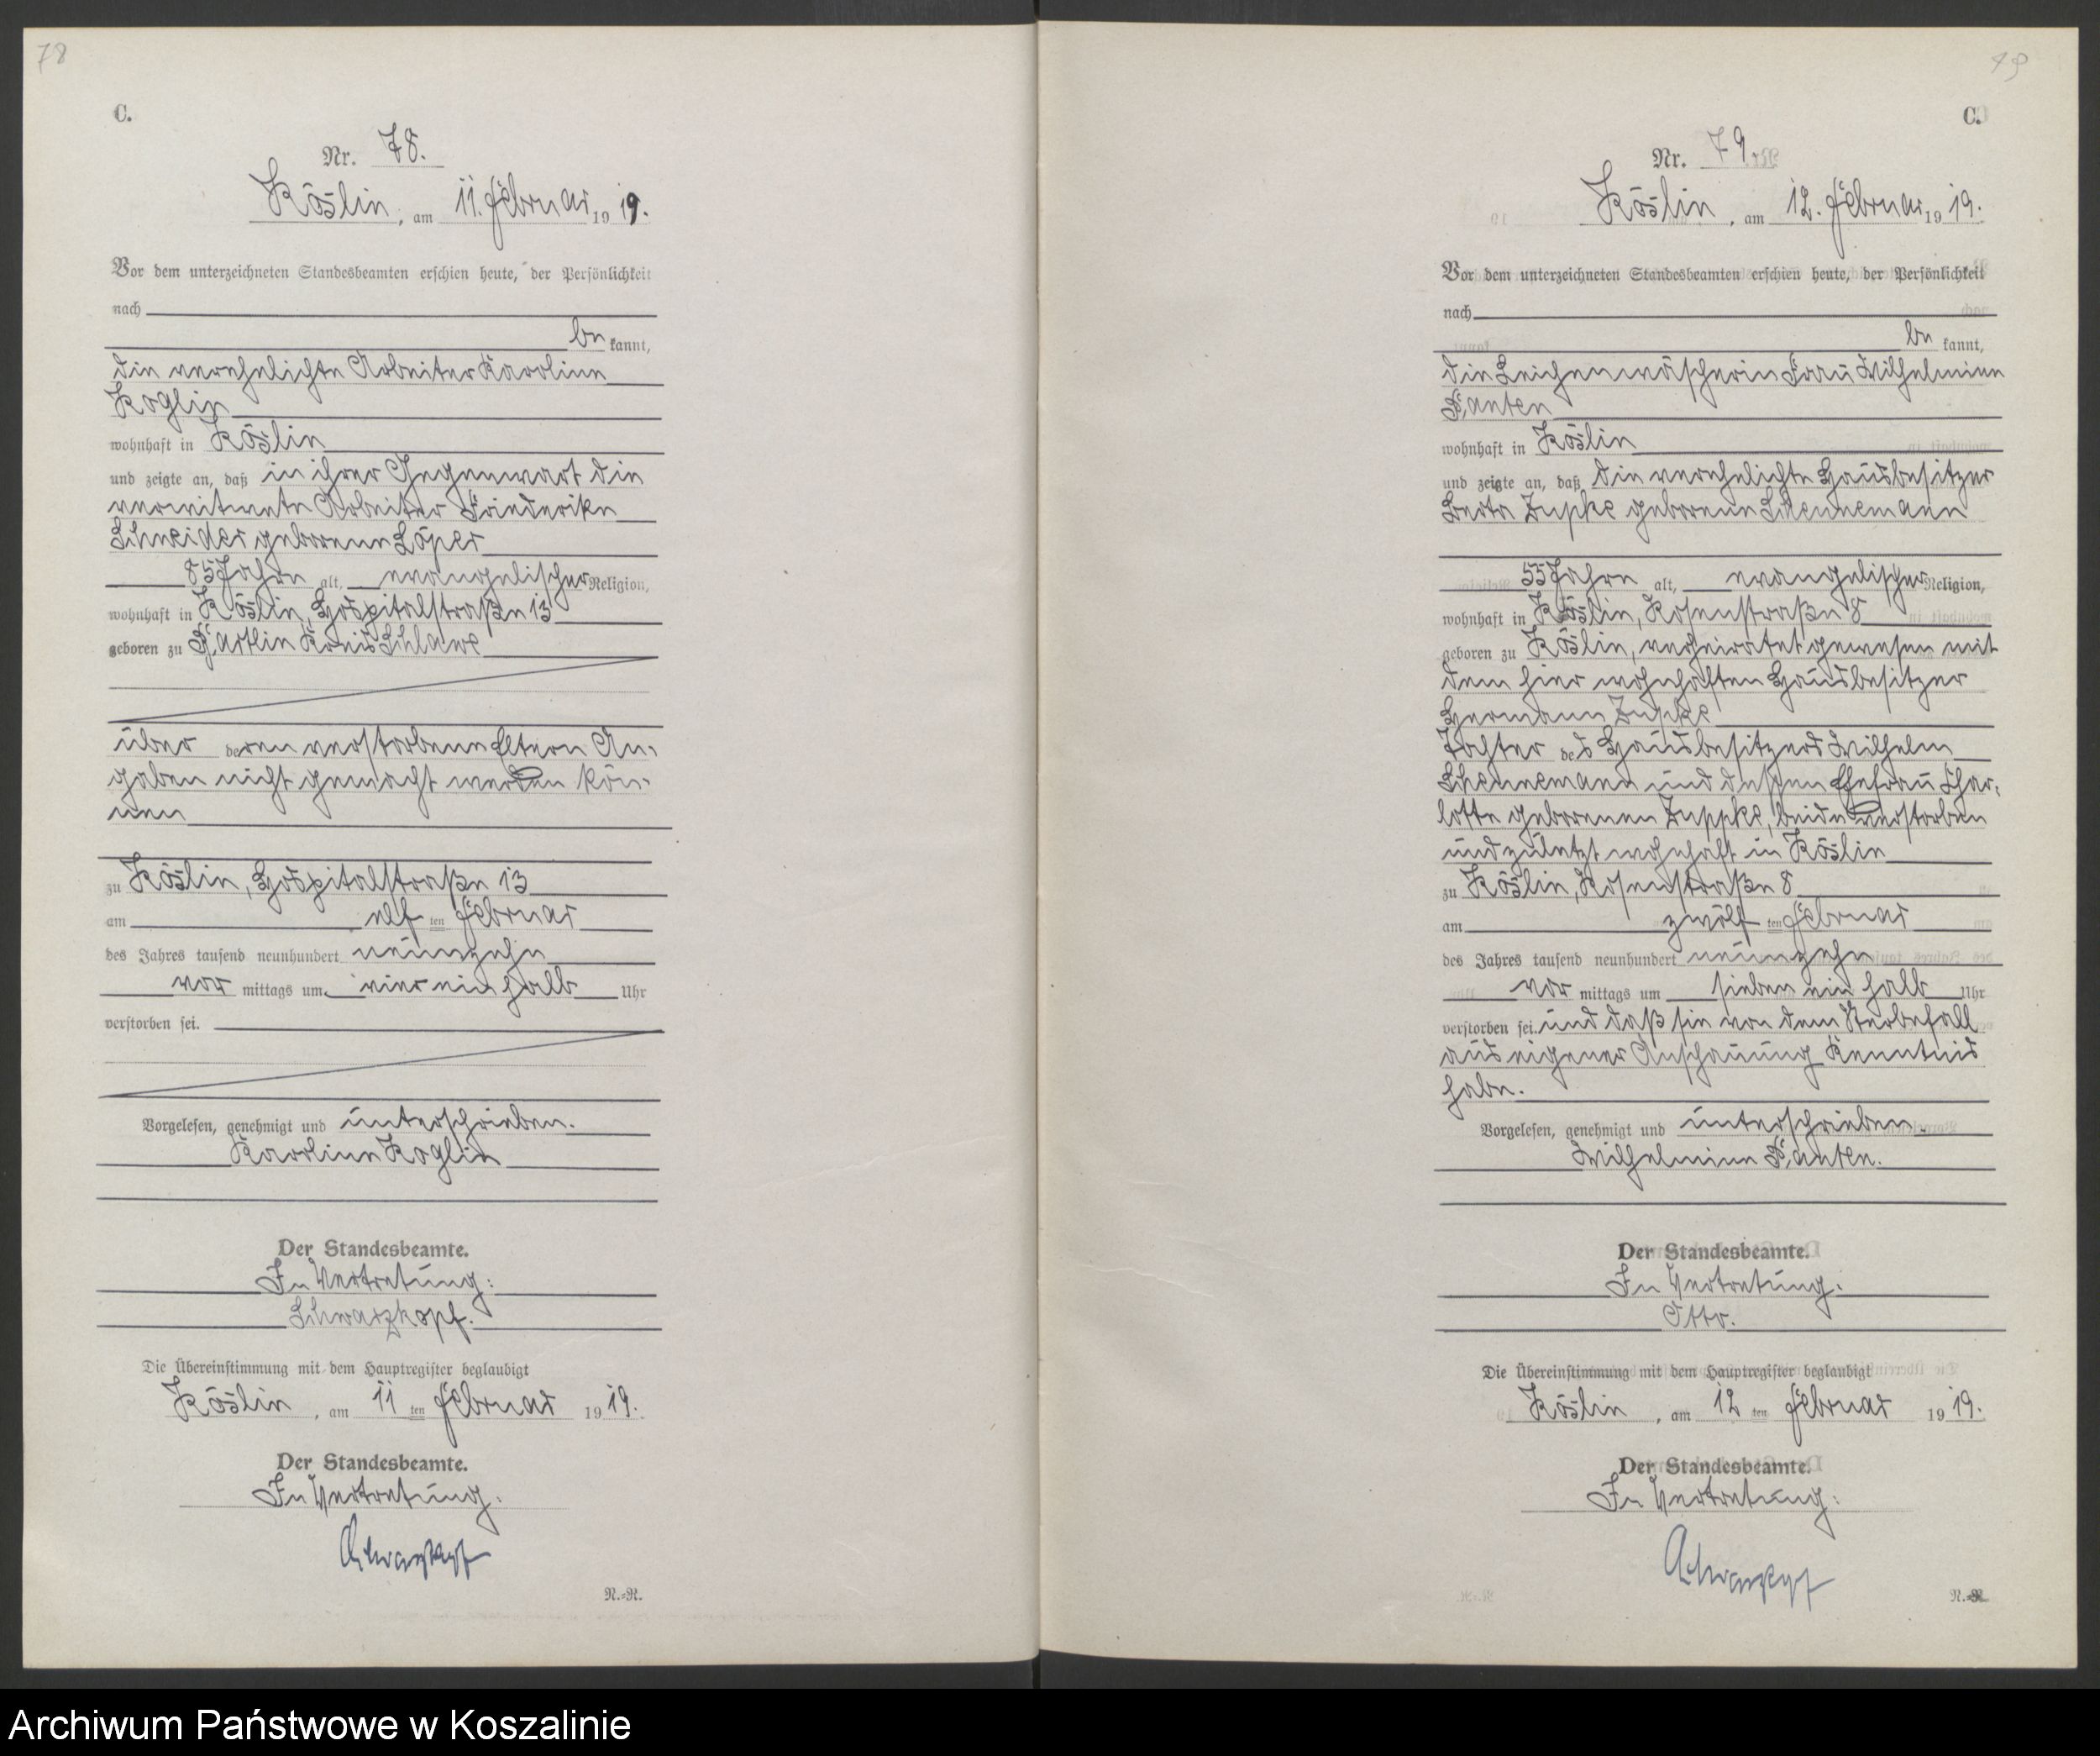 78
C.
Nr. 78.
Köslin, am 11. Februar 1919.
Vor dem unterzeichneten Standesbeamten erschien heute, der Persönlichkeit
nach
be kannt,
die verehelichte Arbeiter Karoline
Koglin
wohnhaft in Köslin
und zeigte an, daß in ihrer Gegenwart die
verwitwete Arbeiter Friederike
Schneider geborene Löper
85 Jahre alt, evangelischer Religion,
wohnhaft in Köslin, Hospitalstraße 13
geboren zu Kreis Schlawe
über deren verstorbene Eltern An-
gaben nicht gemacht werden kön-
nen
zu Köslin, Hospitalstraße 13
am elf ten Februar
des Jahres tausend neunhundert neunzehn
vor mittags um vier ein halb Uhr
verstorben sei.
Vorgelesen, genehmigt und unterschrieben.
Karoline Koglin
Der Standesbeamte.
In Vertretung:
Schwarzkopf.
Die Übereinstimmung mit dem Hauptregister beglaubigt
Köslin, am 11 ten Februar 1919.
Der Standesbeamte.
In Vertretung:
Schwarzkopf
R.-R.
79
C.
Nr. 79.
Köslin, am 12. Februar 1919.
Vor dem unterzeichneten Standesbeamten erschien heute, der Persönlichkeit
nach
be kannt,
die Leichenwäscherin Frau Wilhelmine
Panten
wohnhaft in Köslin
und zeigte an, daß die verehelichte Hausbesitzer
Berta geborene Schennemann
55 Jahre alt, evangelischer Religion,
wohnhaft in Köslin, Rosenstraße 8
geboren zu Köslin, verheiratet gewesen mit
dem hier wohnhaften Hausbesitzer
Hermann
Tochter des Hausbesitzers Wilhelm
Schennemann und dessen Ehefrau Char-
lotte geborenen beide verstorben
und zuletzt wohnhaft in Köslin
zu Köslin, Rosenstraße 8
am zwölf ten Februar
des Jahres tausend neunhundert neunzehn
vor mittags um sieben ein halb Uhr
verstorben sei. und daß sie von dem Sterbefall
aus eigener Anschauung Kenntnis
habe.
Vorgelesen, genehmigt und unterschrieben.
Wilhelmine Panten.
Der Standesbeamte.
In Vertretung:
Otto.
Die Übereinstimmung mit dem Hauptregister beglaubigt
Köslin, am 12 ten Februar 1919.
Der Standesbeamte.
In Vertretung:
Schwarzkopf
R.-R.
Archiwum Państwowe w Koszalinie